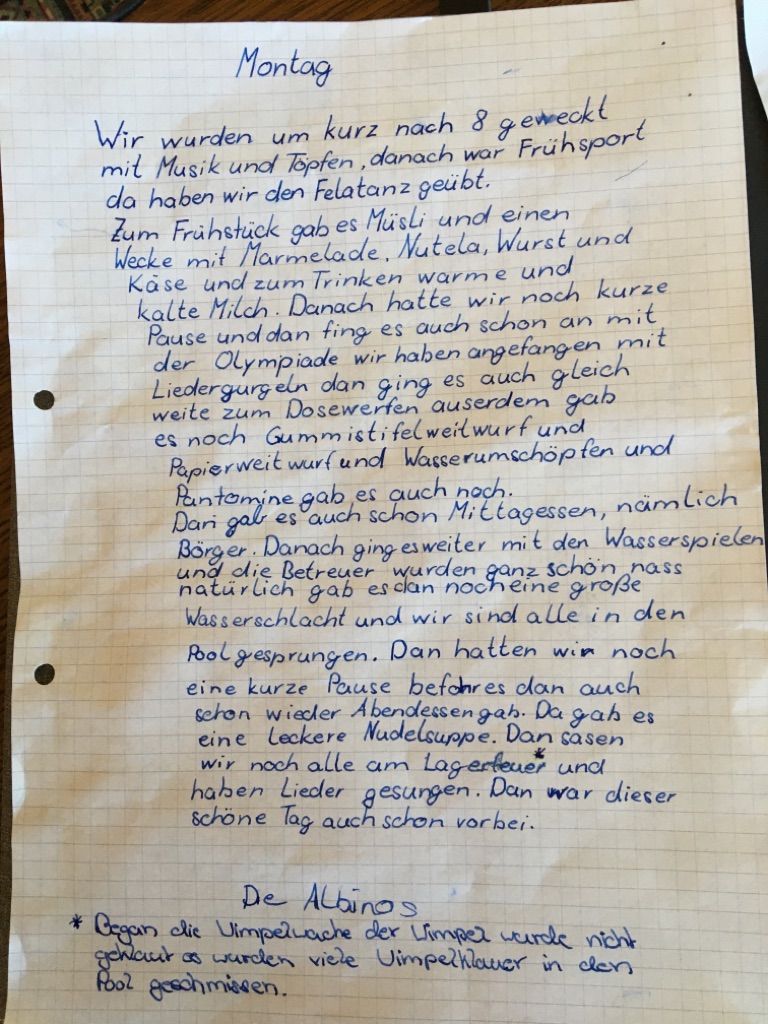 Montag
Wir wurden um kurz nach 8 geweckt
mit Musik und Töpfen, danach war Frühsport
da haben wir den Felatanz geübt.
Zum Frühstück gab es Müsli und einen
Wecke mit Marmelade, Nutela, Wurst und
Käse und zum Trinken warme und
kalte Milch. Danach hatte wir noch kurze
Pause und dan fing es auch schon an mit
der Olympiade wir haben angefangen mit
Liedergurgeln dan ging es auch gleich
weite zum Dosewerfen auserdem gab
es noch Gummistifelweitwurf und
Papierweitwurf und Wasserumschöpfen und
Pantomine gab es auch noch.
Dan gab es auch schon Mittagessen, nämlich
Börger. Danach ging es weiter mit den Wasserspielen
und die Betreuer wurden ganz schön nass
natürlich gab es dan noch eine große
Wasserschlacht und wir sind alle in den
Pool gesprungen. Dan hatten wir noch
eine kurze Pause befor es dan auch
schon wieder Abendessen gab. Da gab es
eine leckere Nudelsuppe. Dan sasen
wir noch alle am Lagerfeuer* und
haben Lieder gesungen. Dan war dieser
schöne Tag auch schon vorbei.
De Albinos
* Began die Wimpelwache der Wimpel wurde nicht
geklaut es wurden viele Wimpelklauer in den
Pool geschmissen.